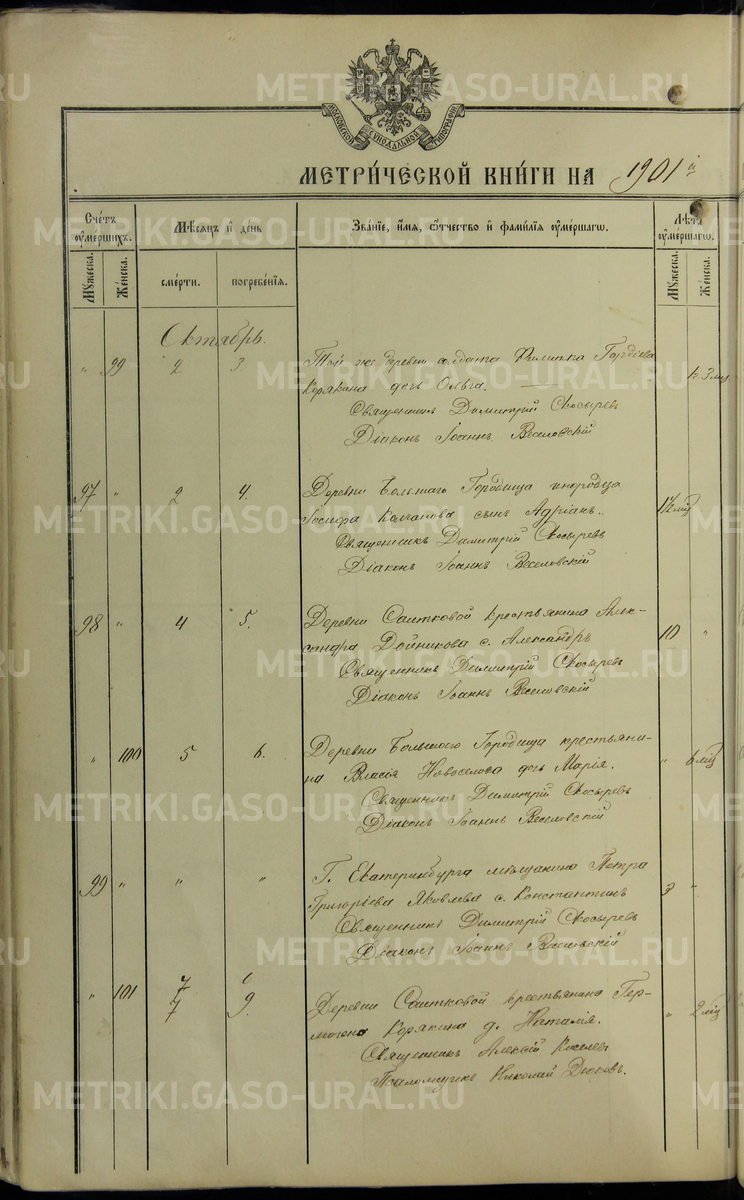 METRIKI.GASO-URAL.RU
МОСКОВСКОЙ СѴНОДАЛЬНОЙ ТИПОГРАФІИ
МЕТРИ́ЧЕСКОЙ КНИ́ГИ НА 1901 й
Сче́тъ ᲂу҆ме́ршихъ.
Мѣ́сѧцъ и҆ де́нь
Зва́нїе, и҆́мѧ, ѻ҆́тчество и҆ фами́лїѧ ᲂу҆ме́ршагѡ.
Лѣ́та ᲂу҆ме́ршагѡ.
Мꙋ́жеска. Же́нска. сме́рти. погребе́нїѧ. Мꙋ́жеска. Же́нска.
Октябрь.
" 99 2 3 Той же деревни солдатка Филипка Гордѣева
Корякина дочь Ольга. 3 мц
Священникъ Димитрій Скосыревъ
Діаконъ Іоаннъ Веселовскій
97 " 2 4. Деревни Большаго Городища инородца
Іосифа Колчанова сынъ Адріанъ. 1½ мц
Священникъ Димитрій Скосыревъ
Діаконъ Іоаннъ Веселовскій
98 " 4 5. Деревни Саитковой крестьянина Алек-
сандра Дойникова с. Александръ 10 "
Священникъ Димитрій Скосыревъ
Діаконъ Іоаннъ Веселовскій
" 100 5 6. Деревни Большого Городища крестьяни-
на Власія Новоселова дочь Марія. " 6 мц
Священникъ Димитрій Скосыревъ
Діаконъ Іоаннъ Веселовскій
99 " " " Г. Екатеринбурга мѣщанина Петра
Григоріева Яковлева с. Константинъ 3 "
Священникъ Димитрій Скосыревъ
Діаконъ Іоаннъ Веселовскій
" 101 7 9. Деревни Саитковой крестьянина Гер-
могена Корякина д. Наталія. " 2 мц
Священникъ Алексій Киселевъ
Псаломщикъ Николай Дюковъ.